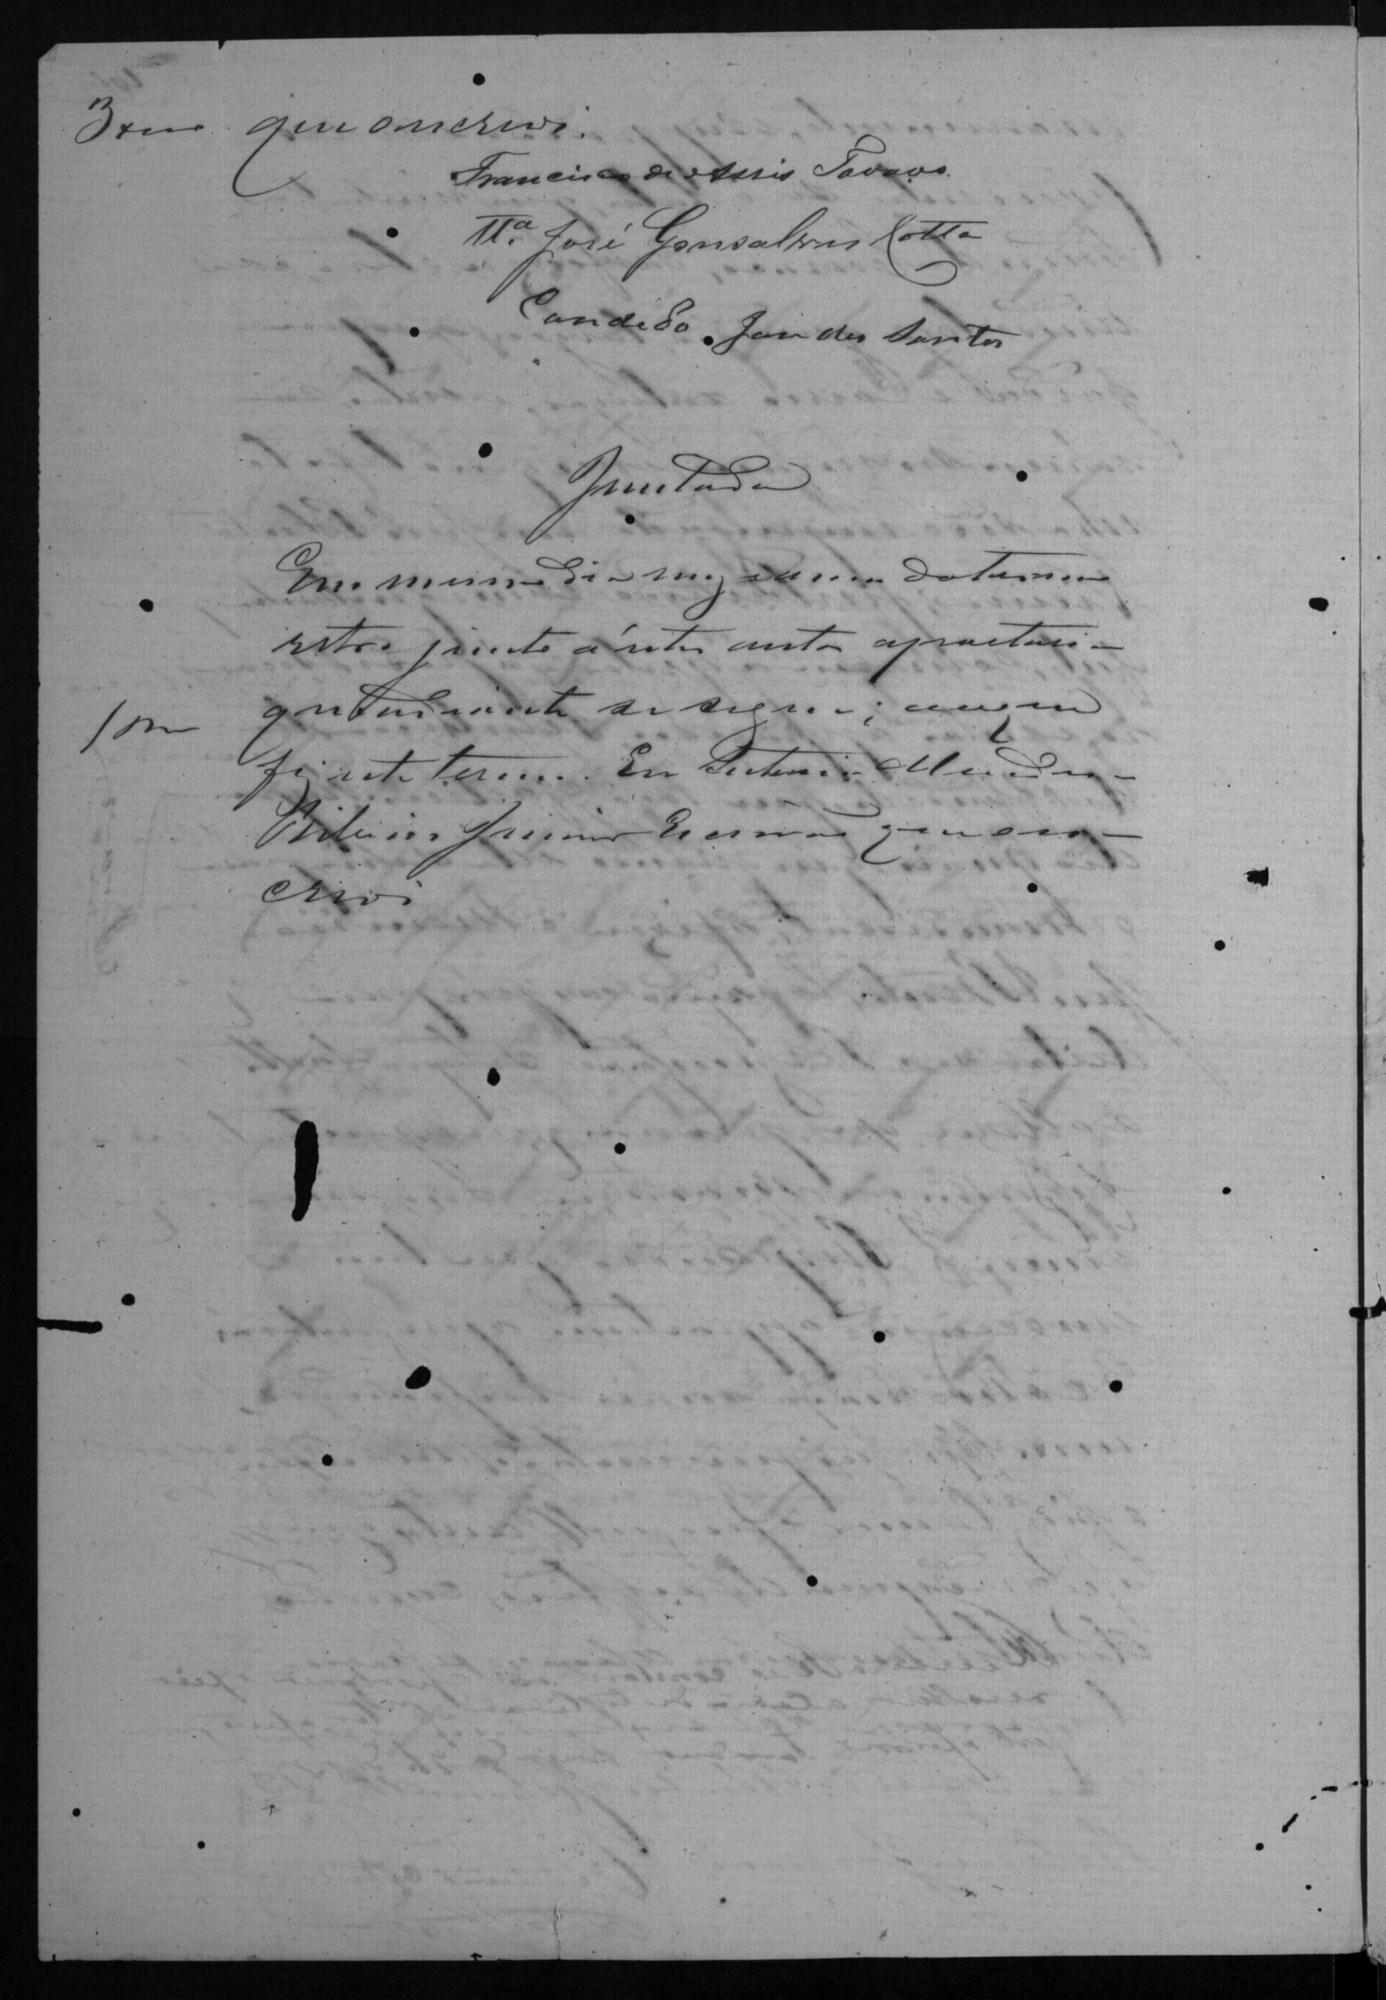 que o escrivi.
Francisco de Assis Tavares
Tt.ª José Gonsalves Cotta
Candido José dos Santos
Juntada
Em mesmo dia mez e anno
retro junto á estes autos a procuração
que adiante se segue; do que
fiz este termo. Eu Antonio Mendes
Ribeiro Junior Escrivão que o es-
crivi